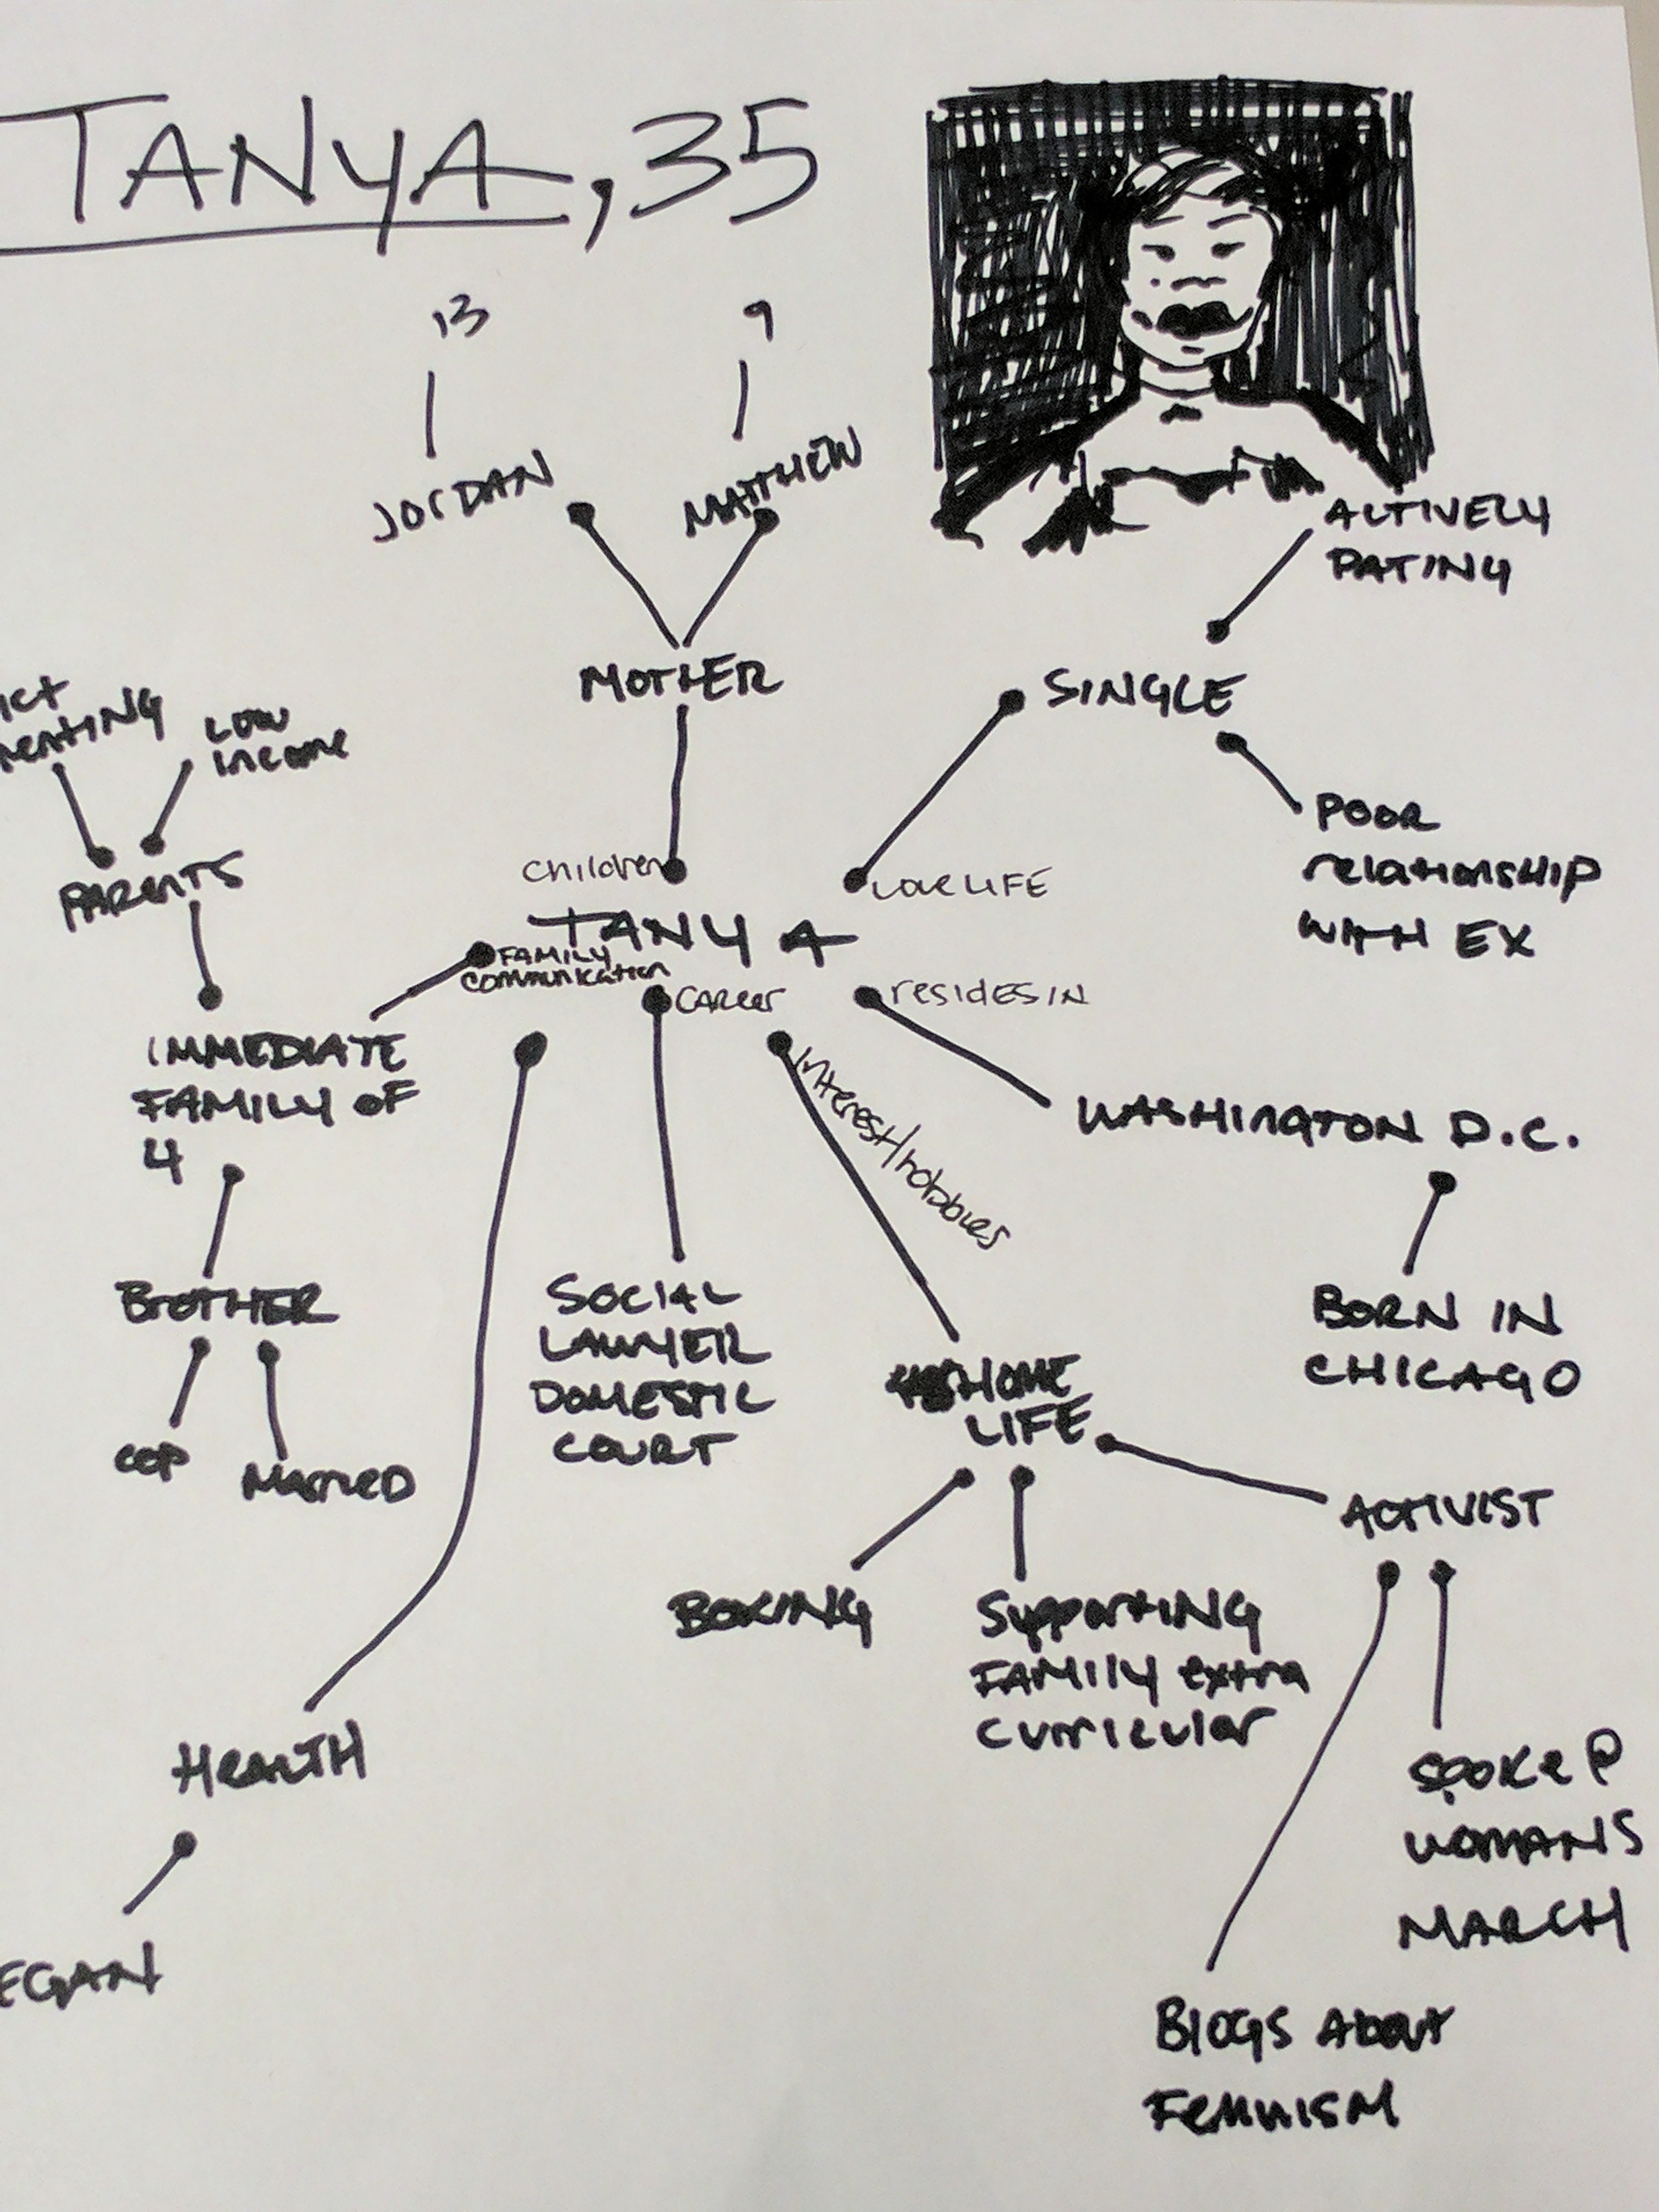 TANYA, 35
13
9
JORDAN
MATTHEW
ACTIVELY
DATING
MOTHER
SINGLE
LOW
income
PARENTS
POOR
relationship
WITH EX
children
LOVE LIFE
TANYA
FAMILY
communication
career
resides in
IMMEDIATE
FAMILY OF
4
interest/hobbies
WASHINGTON D.C.
BROTHER
COP
MARRIED
SOCIAL
LAWYER
DOMESTIC
COURT
HOME
LIFE
BORN IN
CHICAGO
ACTIVIST
BOXING
Supporting
FAMILY extra
curricular
HEALTH
EGAN
SPOKE @
WOMANS
MARCH
BLOGS ABOUT
Feminism